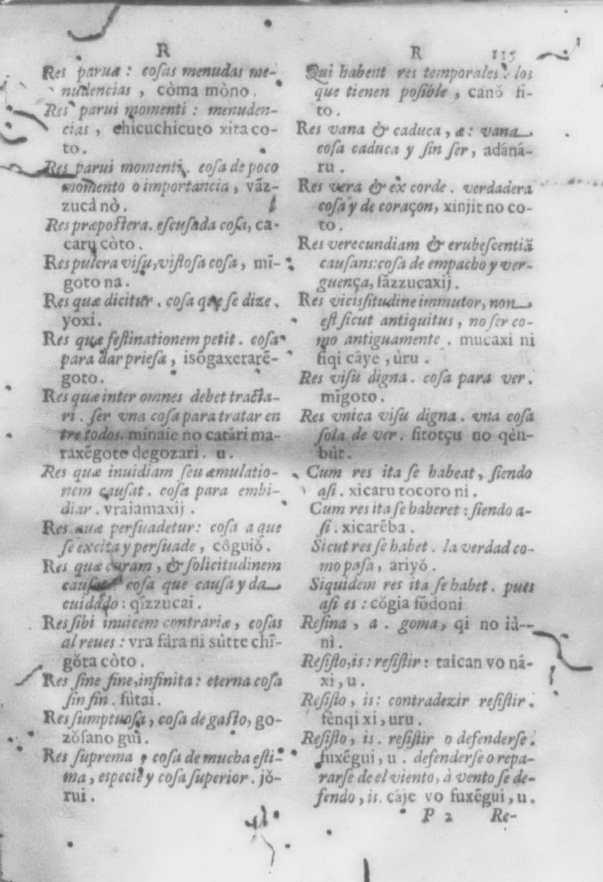 R
Res paruæ : cosas menudas me-
nudencias , còma mòno .
Res parui momenti : menuden-
cias , chicuchicuto xita co-
to .
Res parui momenti . cosa de poco
momento o importancia , vāz-
zucà nò .
Res præpostera . escusada cosa, ca-
caru còto .
Res pulcra visu, vistosa cosa , mī-
goto na .
Res quæ dicitur . cosa que se dize .
yoxi .
Res quæ festinationem petit . cosa
para dar priesa , isōgaxerarē-
goto .
Res quæ inter omnes debet tracta-
ri . ser vna cosa para tratar en
tre todos . minaie no catàri ma-
ràxēgoto degozari . u .
Res quæ inuidiam seu æmulatio-
nem causat . cosa para embi-
diar . vraiamaxij .
Res quæ persuadetur : cosa a que
se excita y persuade , cōguiō .
Res quæ curam , & solicitudinem
causat cosa que causa y da
cuidado : qīzzucai .
Res sibi inuicem contrariæ , cosas
al reues : vra fàra ni sùtte chī-
gŏta còto .
Res sine fine, infinita : eterna cosa
sin fin . fùtai .
Res sumptuosa , cosa de gasto, go-
zŏsano gui .
Res suprema , cosa de mucha esti-
ma , especie y cosa superior . jŏ-
rui .
R 115
Qui habent res temporales . los
que tienen posible , canŏ fi-
to .
Res vana & caduca , æ : vana
cosa caduca y sin ser , adànà-
ru .
Res vera & ex corde . verdadera
cosa y de coraçon, xinjit no co-
to .
Res verecundiam & erubescentiā
causans : cosa de empacho y ver-
guença, fàzzucaxij .
Res vicissitudine immutor, non
est sicut antiquitus , no ser co-
mo antiguamente . mucaxi ni
fiqi càye , ùru .
Res visu digna . cosa para ver .
mìgoto .
Res vnica visu digna . vna cosa
sola de ver . fitotçu no qèn-
bùt .
Cum res ita se habeat , siendo
asi . xicaru tocoro ni .
Cum res ita se haberet : siendo a-
si . xicarēba .
Sicut res se habet . la verdad co-
mo pasa , ariyŏ .
Siquidem res ita se habet . pues
asi es : cŏgia fŏdoni
Resina , a . goma, qi no ià-
nì .
Resisto, is : resistir : taican vo nà-
xi , u .
Resisto , is : contradezir resistir .
fēnqi xi , uru .
Resisto , is . resistir o defenderse .
fuxēgui, u . defenderse o repa-
rarse de el viento, à vento se de-
fendo , is . càje vo fuxēgui , u .
P 2 Re-